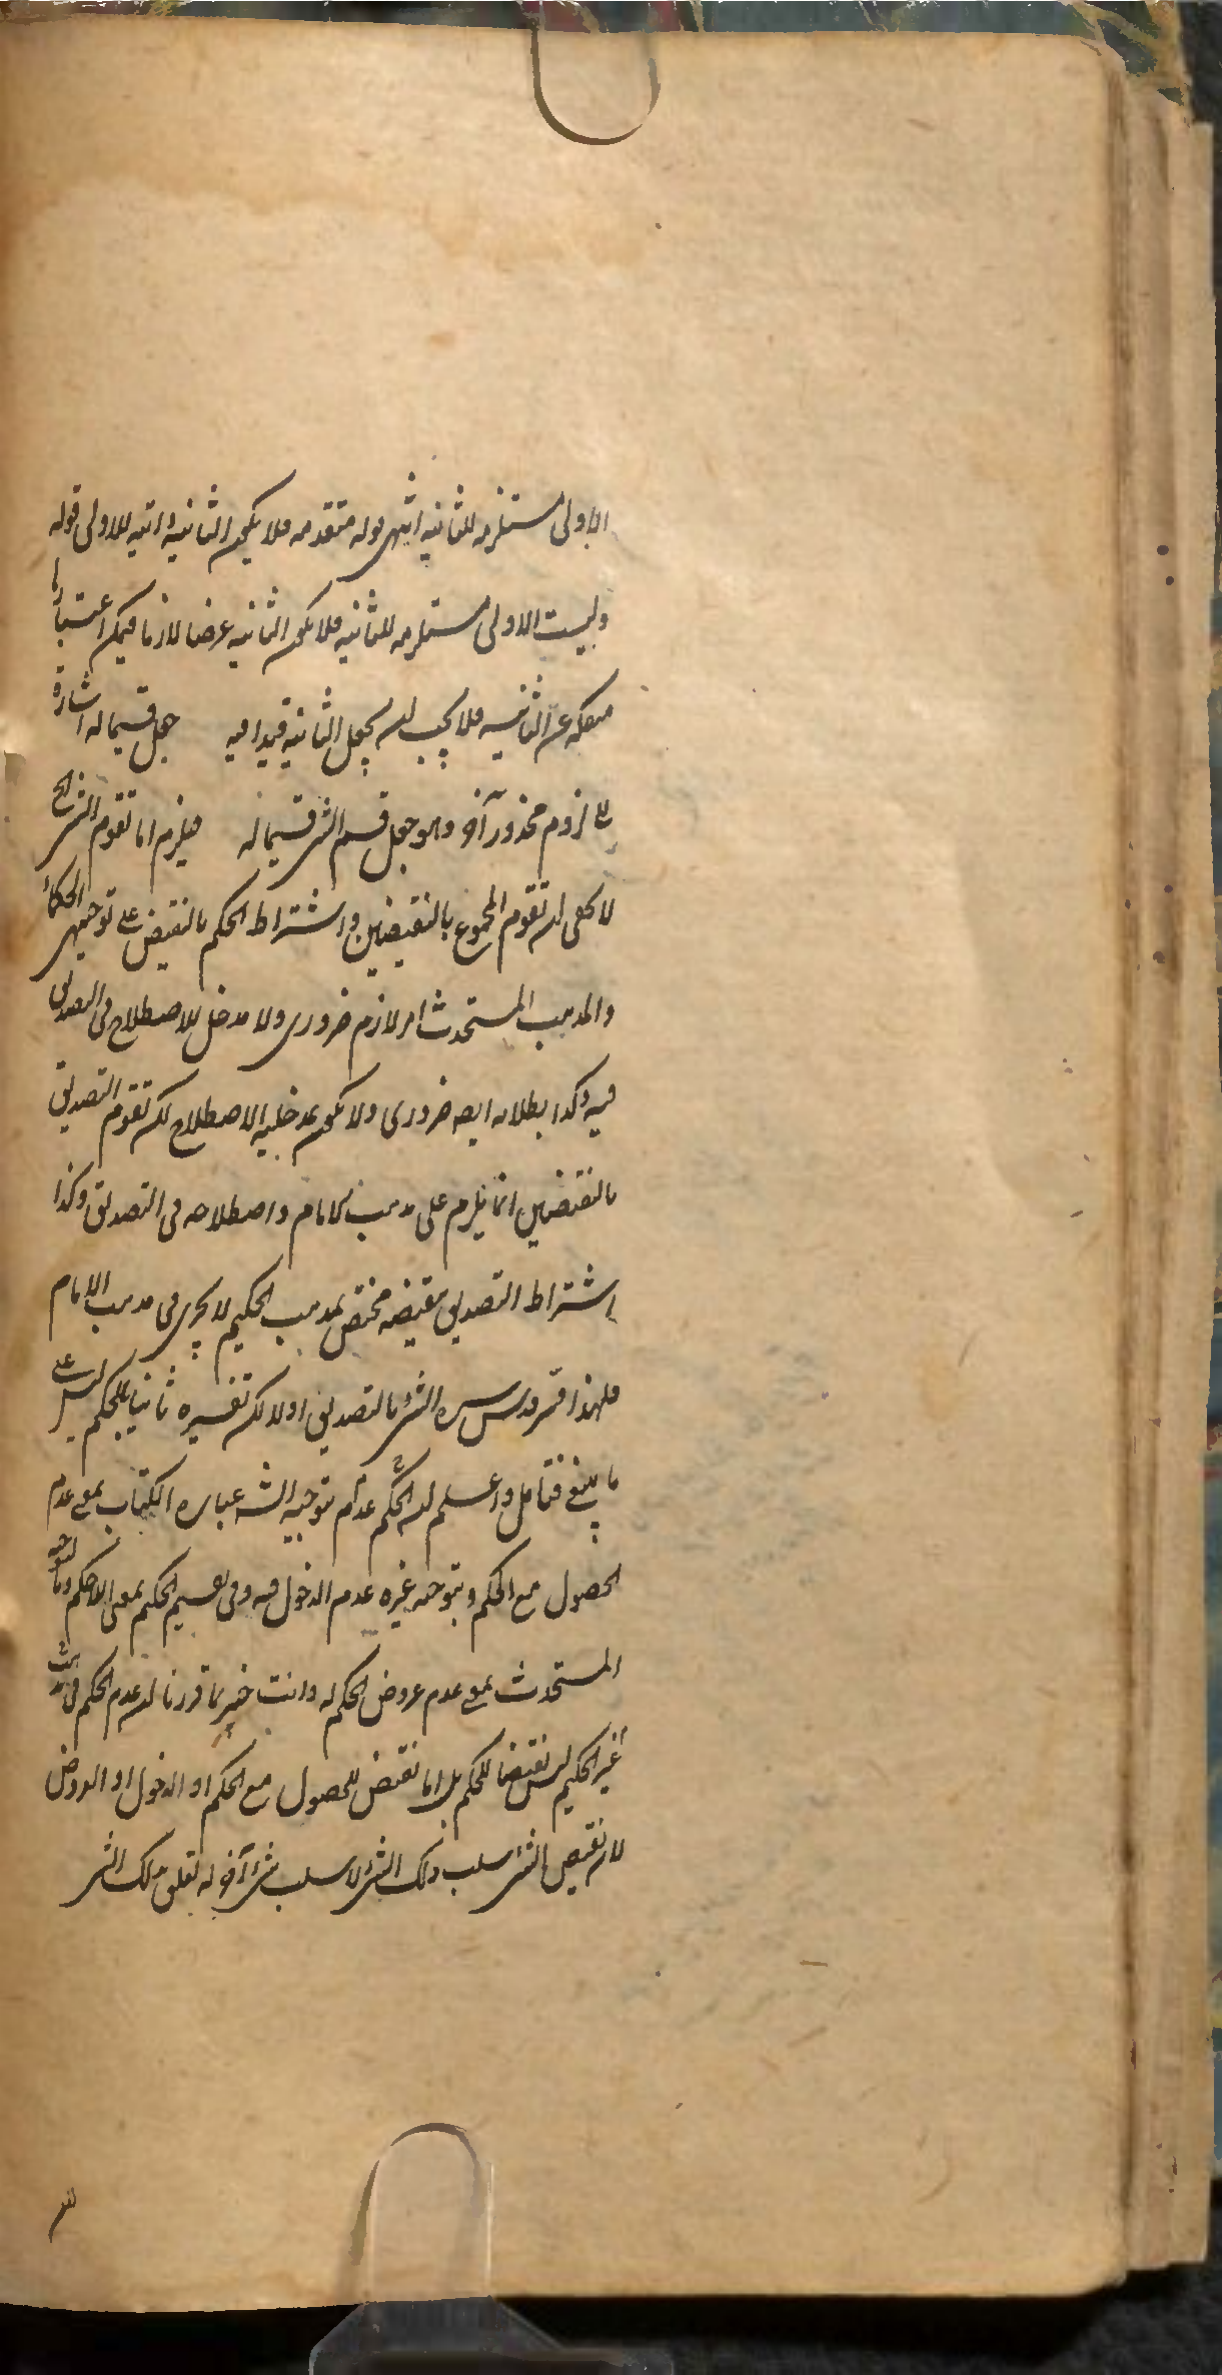 الاولى مستلزمه للثانيه انتهى قوله متقدمه فلا يكون الثانيه ذاتيه للاولى قوله
وليست الاولى مستلزمه للثانيه فلا يكون الثانيه عرضا لازما فيمكن اعتبارها
منفكه عن الثانيه فلا يجب ان يجعل الثانيه قيدا فيه جعل قسيما له اشارة
الى لزوم محذور آخر وهو جعل قسم الشئ قسيما له فيلزم اما تقوم الشئ الخ
لا يخفى ان تقوم المجموع بالنقيضين واشتراط الحكم بالنقيض على توجيهى الحكماء
والمذهب المستحدث امر لازم ضرورى ولا مدخل للاصطلاح فى التصديق
فيه وكذا بطلانه ايضا ضرورى ولا يكون مدخليه الاصطلاح لكن تقوم التصديق
بالنقيضين انما يلزم على مذهب الامام واصطلاحه فى التصديق وكذا
اشتراط التصديق بنقيضه مختص بمذهب الحكيم لا يجرى فى مذهب الامام
فلهذا فسر قدس سره الشئ بالتصديق اولا لكن تفسيره ثانيا بالحكم ليس على
ما ينبغى فتامل واعلم ان الحكم عدم بتوجيه الشه عباره الكتاب بمعنى عدم
الحصول مع الحكم وبتوجيه غيره عدم الدخول فيه وفى تقسيم الحكيم بمعنى اللاحكم
المستحدث بمعنى عدم عروض الحكم له وانت خبير بما قررنا ان عدم الحكم فى
غير الحكيم ليس نقيضا للحكم بل اما نقيض للحصول مع الحكم او الدخول او العروض
لان نقيض الشئ سلب ذلك الشئ لا سلب شئ آخر له تعلق بذلك الشئ